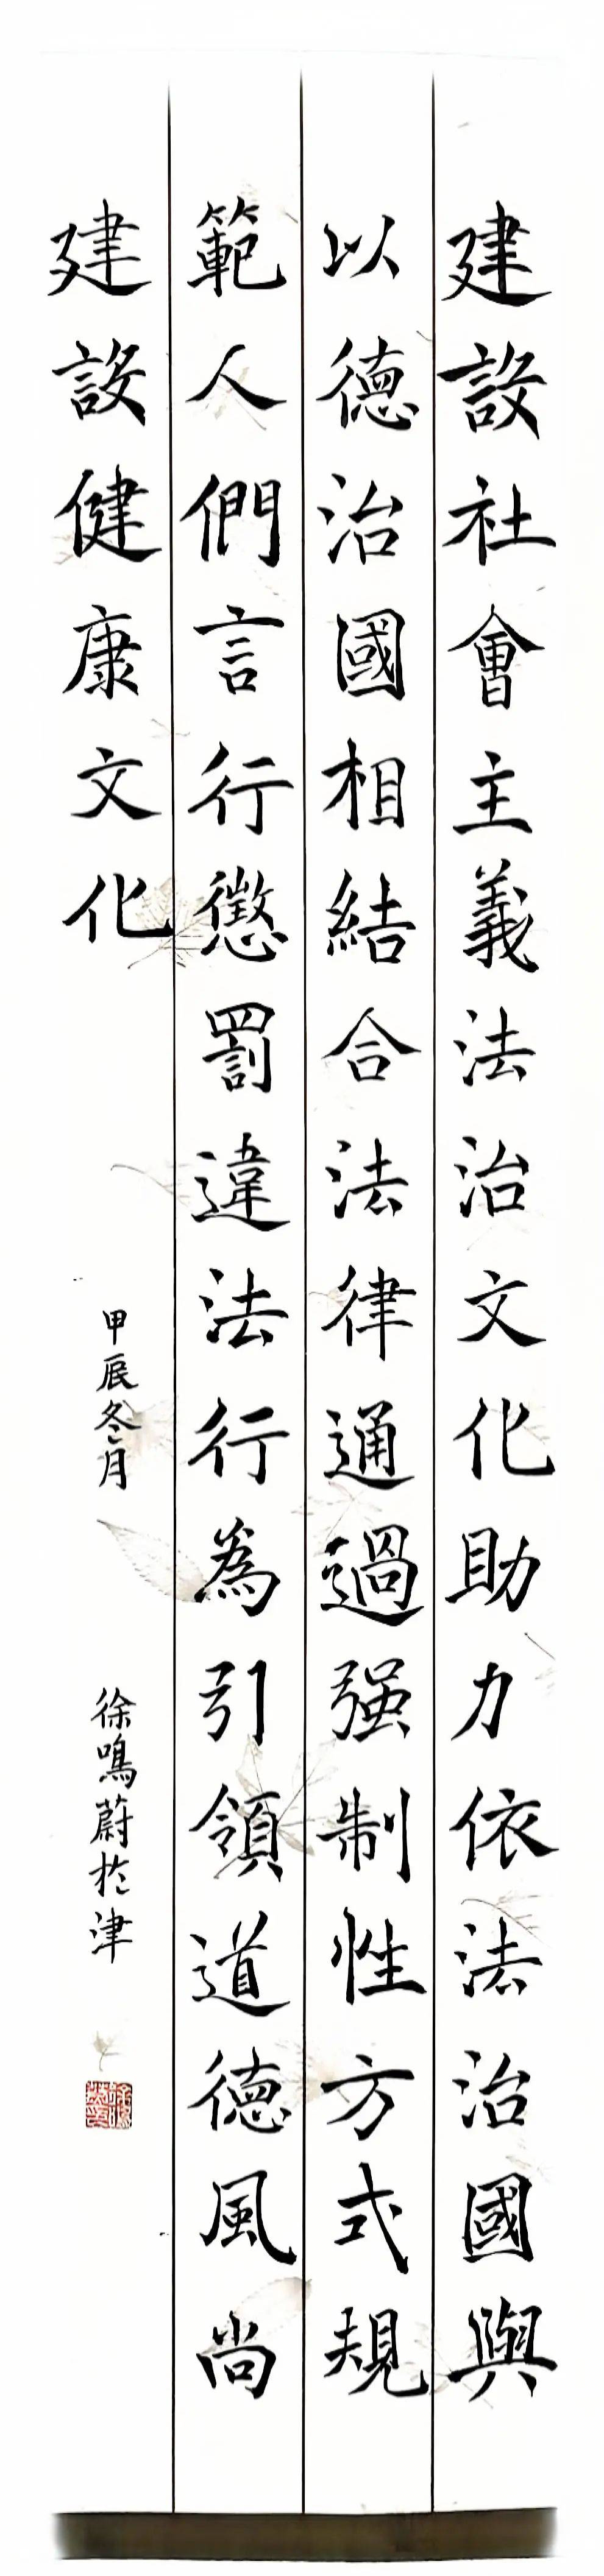 建設社會主義法治文化助力依法治國與
以德治國相結合法律通過强制性方式規
範人們言行懲罰違法行為引領道德風尚
建設健康文化
甲辰冬月
徐鳴蔚於津